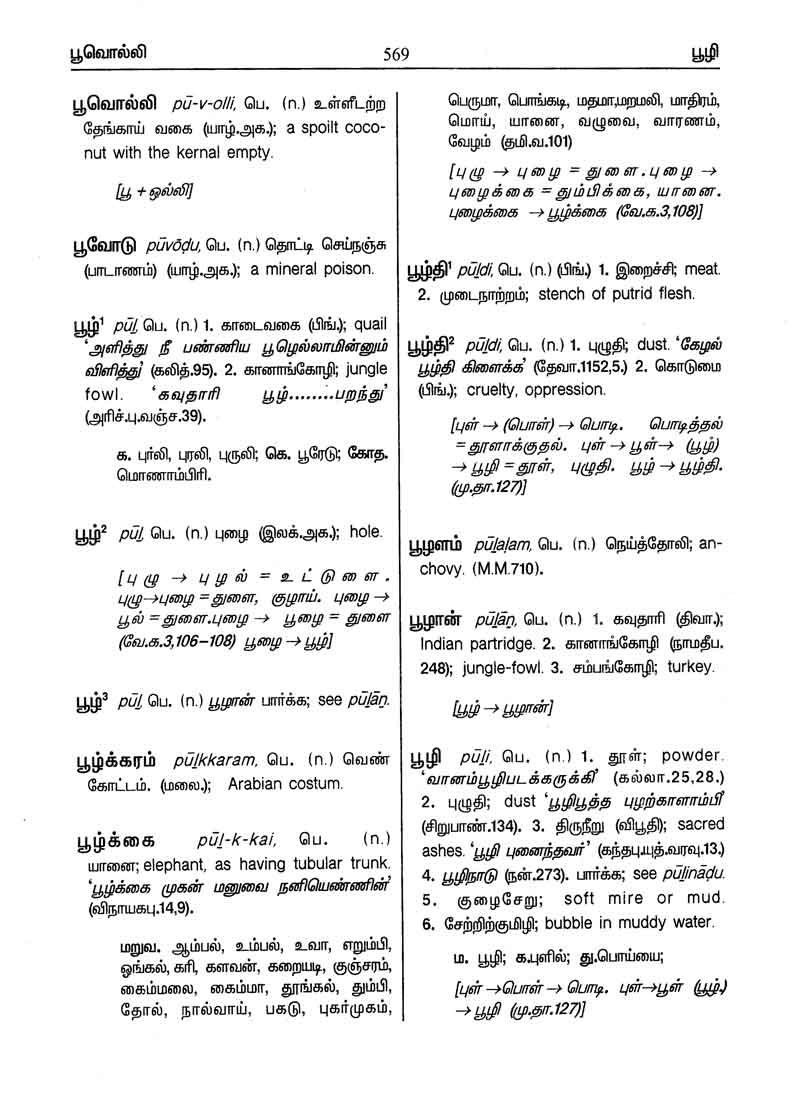 பூவொல்லி 569 பூழி
பூவொல்லி pū-v-olli, பெ. (n.) உள்ளீடற்ற
தேங்காய் வகை (யாழ்.அக.); a spoilt coco-
nut with the kernal empty.
[பூ + ஒல்லி]
பூவோடு pūvōḍu, பெ. (n.) தொட்டி செய்நஞ்சு
(பாடாணம்) (யாழ்.அக.); a mineral poison.
பூழ்¹ pūḻ, பெ. (n.) 1. காடைவகை (பிங்.); quail
'அளித்து நீ பண்ணிய பூழெல்லாமின்னும்
விளித்து' (கலித்.95). 2. கானாங்கோழி; jungle
fowl. 'கவுதாரி பூழ்........பறந்து'
(அரிச்.பு.வஞ்ச.39).
க. புர்லி, புரலி, புருலி; கெ. பூரேடு; கோத.
மொணாம்பிரி.
பூழ்² pūḻ, பெ. (n.) புழை (இலக்.அக.); hole.
[புழு → புழல் = உட்டுளை.
புழு→புழை = துளை, குழாய். புழை →
பூல் = துளை.புழை → பூழை = துளை
(வே.க.3,106–108) பூழை → பூழ்]
பூழ்³ pūḻ, பெ. (n.) பூழான் பார்க்க; see pūḻāṉ.
பூழ்க்கரம் pūḻkkaram, பெ. (n.) வெண்
கோட்டம். (மலை.); Arabian costum.
பூழ்க்கை pūḻ-k-kai, பெ. (n.)
யானை; elephant, as having tubular trunk.
'பூழ்க்கை முகன் மனுவை நனியெண்ணின்'
(விநாயகபு.14,9).
மறுவ. ஆம்பல், உம்பல், உவா, எறும்பி,
ஒங்கல், கரி, களவன், கறையடி, குஞ்சரம்,
கைம்மலை, கைம்மா, தூங்கல், தும்பி,
தோல், நால்வாய், பகடு, புகர்முகம்,
பெருமா, பொங்கடி, மதமா,மறமலி, மாதிரம்,
மொய், யானை, வழுவை, வாரணம்,
வேழம் (தமி.வ.101)
[புழு → புழை = துளை.புழை →
புழைக்கை = தும்பிக்கை, யானை.
புழைக்கை → பூழ்க்கை (வே.க.3,108)]
பூழ்தி¹ pūḻdi, பெ. (n.) (பிங்.) 1. இறைச்சி; meat.
2. முடைநாற்றம்; stench of putrid flesh.
பூழ்தி² pūḻdi, பெ. (n.) 1. புழுதி; dust. 'கேழல்
பூழ்தி கிளைக்க' (தேவா.1152,5.) 2. கொடுமை
(பிங்.); cruelty, oppression.
[புள் → (பொள்) → பொடி. பொடித்தல்
= தூளாக்குதல். புள் → பூள்→ (பூழ்)
→ பூழி = தூள், புழுதி. பூழ் → பூழ்தி.
(மு.தா.127)]
பூழளம் pūḻaḷam, பெ. (n.) நெய்த்தோலி; an-
chovy. (M.M.710).
பூழான் pūḻāṉ, பெ. (n.) 1. கவுதாரி (திவா.);
Indian partridge. 2. கானாங்கோழி (நாமதீப.
248); jungle-fowl. 3. சம்பங்கோழி; turkey.
[பூழ் → பூழான்]
பூழி pūḻi, பெ. (n.) 1. தூள்; powder.
'வானம்பூழிபடக்கருக்கி' (கல்லா.25,28.)
2. புழுதி; dust 'பூழிபூத்த புழற்காளாம்பீ'
(சிறுபாண்.134). 3. திருநீறு (விபூதி); sacred
ashes. 'பூழி புனைந்தவர்' (கந்தபு.யுத்.வரவு.13.)
4. பூழிநாடு (நன்.273). பார்க்க; see pūḻināḍu.
5. குழைசேறு; soft mire or mud.
6. சேற்றிற்குமிழி; bubble in muddy water.
ம. பூழி; க.புளில்; து.பொய்யை;
[புள் →பொள் → பொடி. புள்→பூள் (பூழ்.)
→ பூழி (மு.தா.127)]